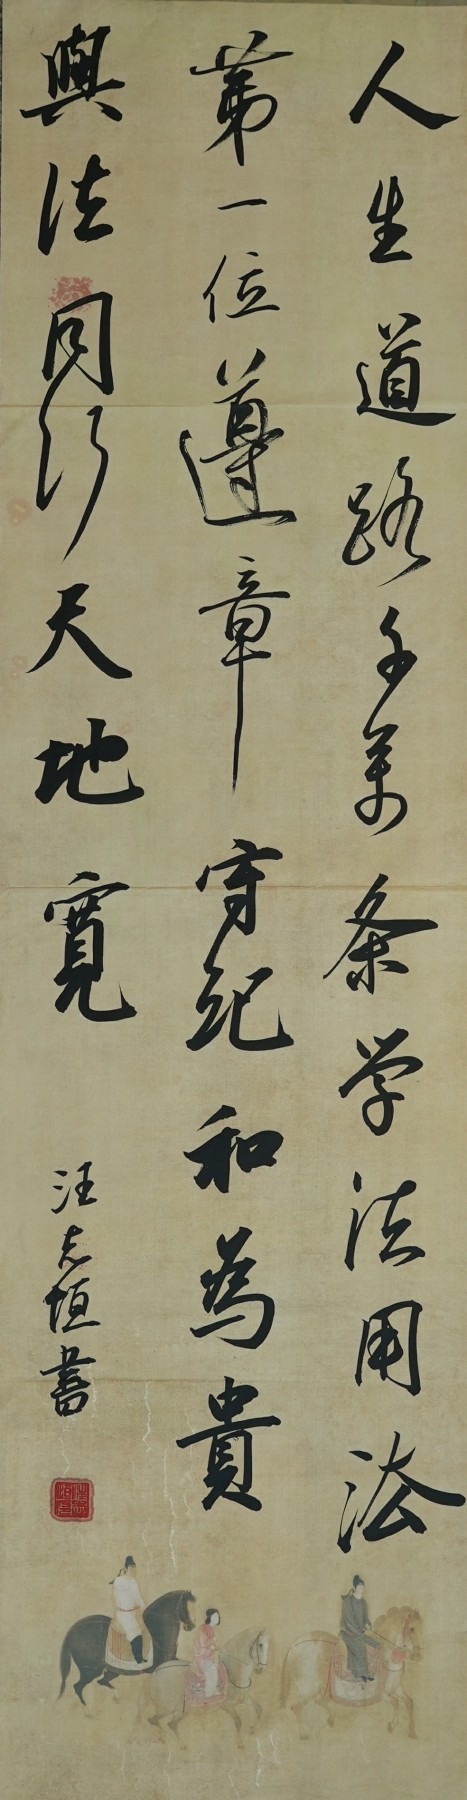 人生道路千萬条学法用法
第一位遵章守纪和為貴
與法同行天地寬
汪志垣書